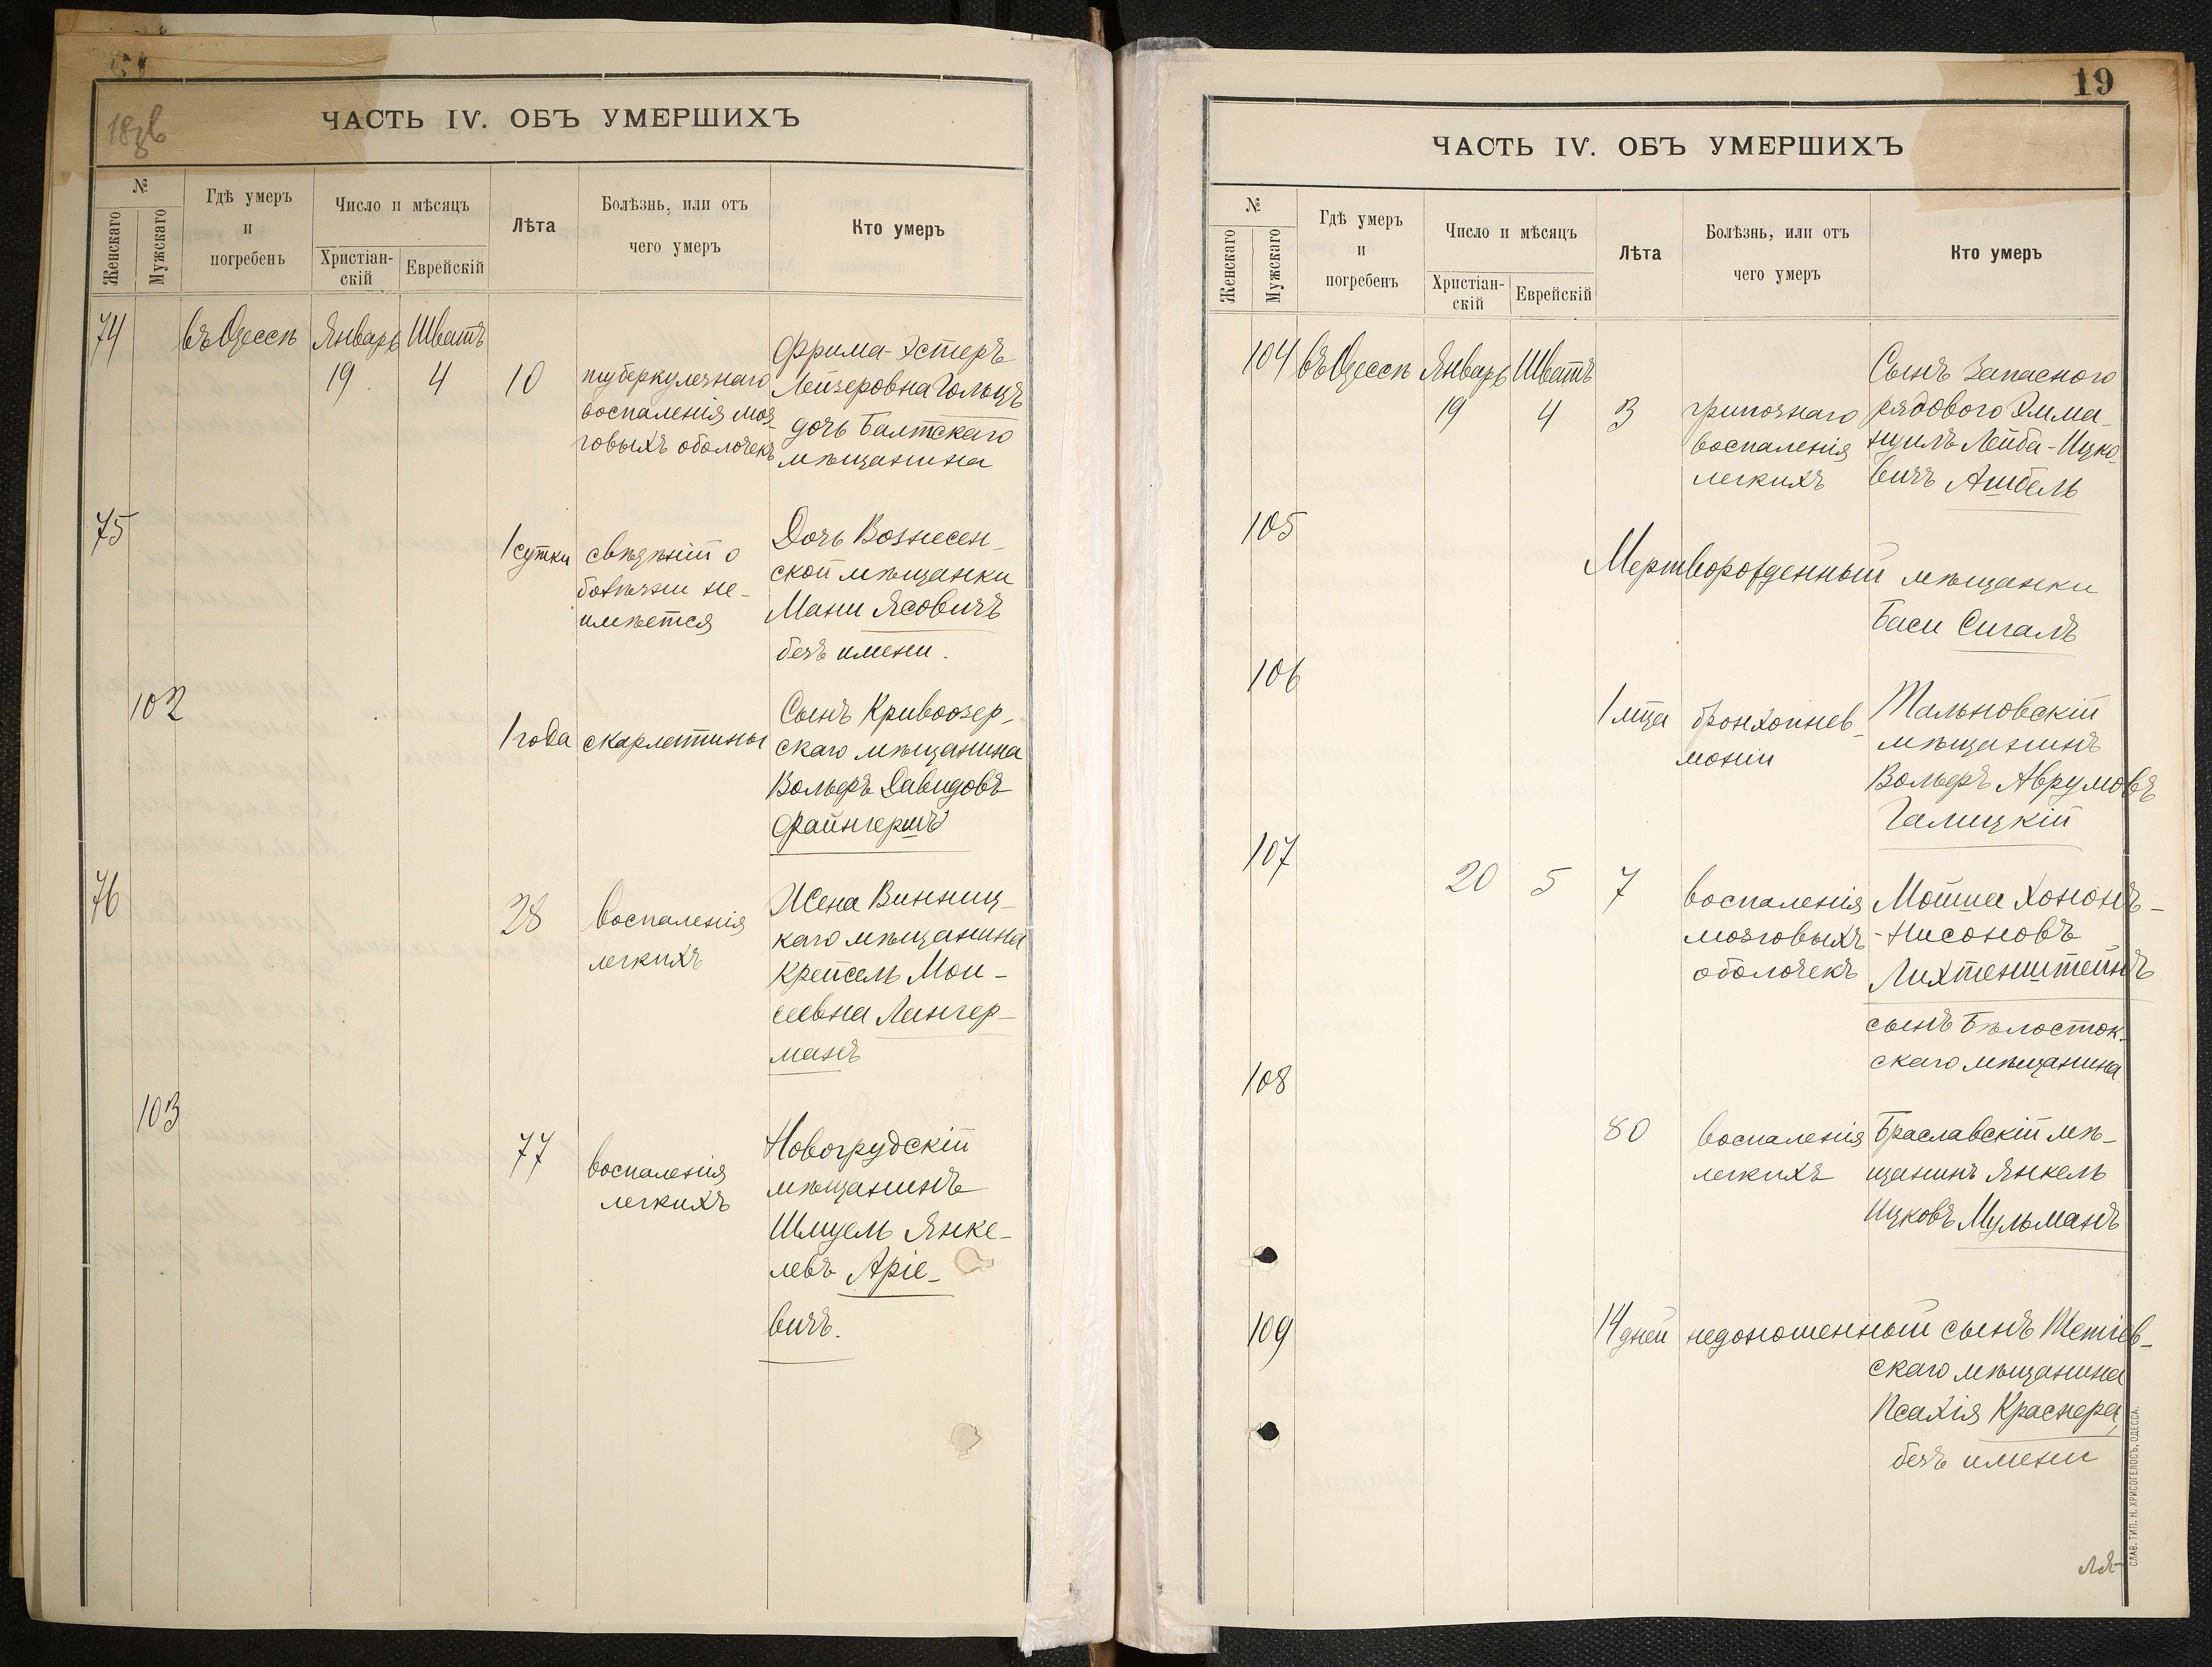 18зв
ЧАСТЬ IV. ОБЪ УМЕРШИХЪ
№
Женскаго
Мужскаго
Гдѣ умеръ
и
погребенъ
Число и мѣсяцъ
Христіан-
скій
Еврейскій
Лѣта
Болѣзнь, или отъ
чего умеръ
Кто умеръ
74
въ Одессѣ
Январь
19
Шватъ
4
10
туберкулезнаго
воспаленія моз-
говыхъ оболочекъ
Фрима-Эстеръ
Лейзеровна Гольцъ
дочь Балтскаго
мѣщанина
75
1 сутки
свѣдѣній о
болѣзни не-
имѣется
Дочь Вознесен-
ской мѣщанки
Мани Ясовичъ
безъ имени.
102
1 года
скарлатины
Сынъ Кривоозер-
скаго мѣщанина
Вольфъ Давидовъ
Файнгершъ
76
28
воспаленія
легкихъ
Жена Винниц-
каго мѣщанина
Крейсель Мои-
сеевна Лангер-
манъ
103
77
воспаленія
легкихъ
Новогрудскій
мѣщанинъ
Шмуель Янке-
левъ Аріе-
вичъ.
19
ЧАСТЬ IV. ОБЪ УМЕРШИХЪ
№
Женскаго
Мужскаго
Гдѣ умеръ
и
погребенъ
Число и мѣсяцъ
Христіан-
скій
Еврейскій
Лѣта
Болѣзнь, или отъ
чего умеръ
Кто умеръ
104
въ Одессѣ
Январь
19
Шватъ
4
3
грипознаго
воспаленія
легкихъ
Сынъ запасного
рядового Эмма-
нуилъ Лейба-Ицко-
вичъ Ашбель
105
Мертворожденный мѣщанки
Баси Сигалъ
106
1 мца
бронхопнев-
моніи
Тальновскій
мѣщанинъ
Вольфъ Аврумовъ
Галицкій
107
20
5
7
воспаленія
мозговыхъ
оболочекъ
Мойше Хононъ-
-Нисоновъ
Лихтенштейнъ
сынъ Бѣлосток-
скаго мѣщанина
108
80
воспаленія
легкихъ
Браславскій мѣ-
щанинъ Янкель
Ицковъ Мульманъ
109
14 дней
недоношенный сынъ Тетіев-
скаго мѣщанина
Псахія Краснера,
безъ имени
СЛАВ. ТИП. Н. ХРИСОГЕЛОСЪ, ОДЕССА.